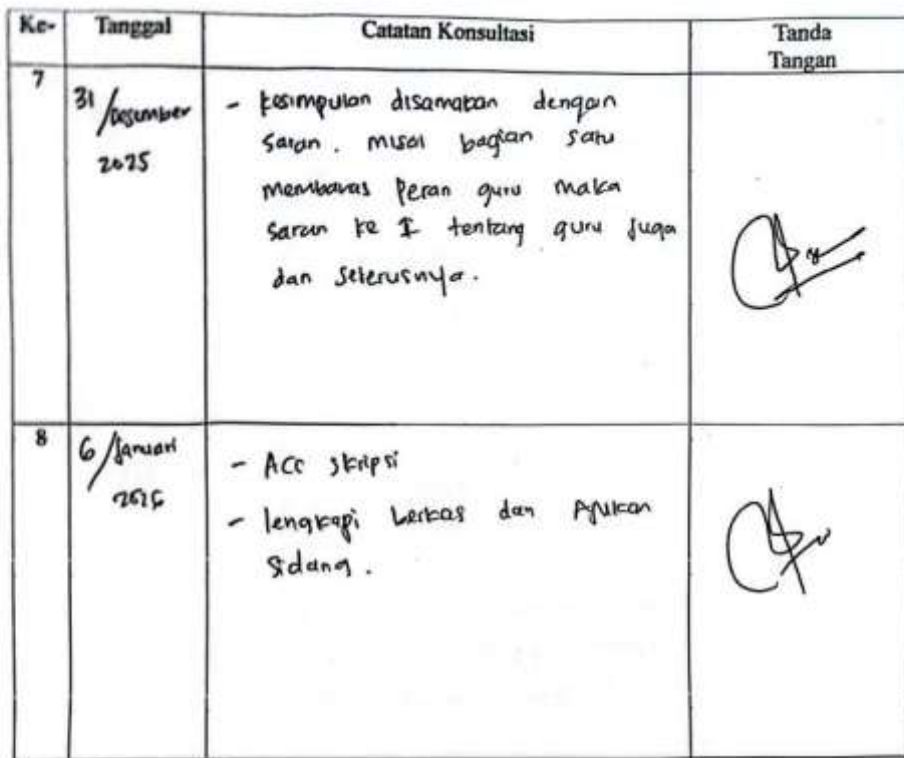 Ke- Tanggal Catatan Konsultasi Tanda
Tangan
7
31 / Desember
2025
- kesimpulan disamakan dengan
saran. misal bagian satu
membahas Peran guru maka
saran ke I tentang guru juga
dan seterusnya.
8
6 / Januari
2026
- Acc skripsi
- lengkapi berkas dan Ajukan
Sidang.